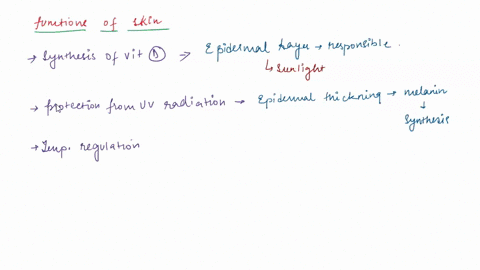 functions of skin
→ Synthesis of vit Ⓓ => Epidermal layer → responsible.
↳ Sunlight
→ Protection from UV radiation → Epidermal thickning → melanin
↓
Synthesis
→ Temp. regulation